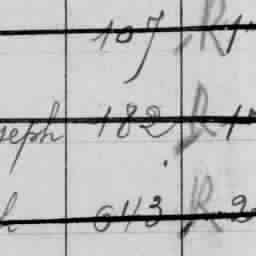 107 R 1
seph 182 R 1
h 643 R 2